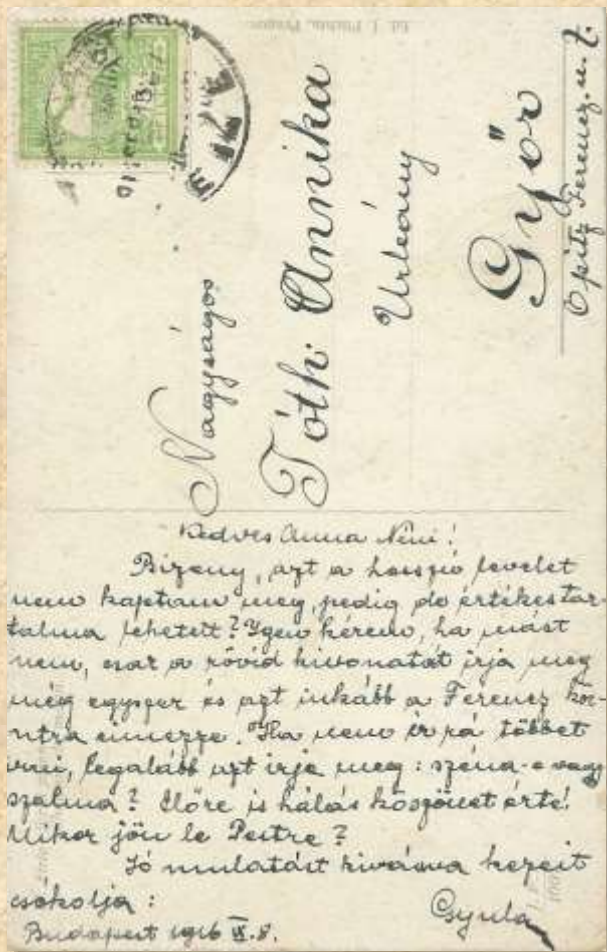 Ed. J. Plichta, Prague.
Nagyságos
Tóth Annika
Urleány
Győr
Opitz Ferencz u. 7.
Kedves Anna Néni!
Bizony, azt a hosszú levelet
nem kaptam meg, pedig de értékes tar-
talma lehetett? Igen kérem, ha mást
nem, csak a rövid kivonatát irja meg
még egyszer és azt inkább a Ferencz
Ha nem ér rá többet
irni, legalább azt irja meg: széna-e vagy
szalma? Előre is hálás köszönet érte!
Mikor jön le Pestre?
Jó mulatást kivánva kezeit
csókolja:
Gyula
Budapest 1916 8.